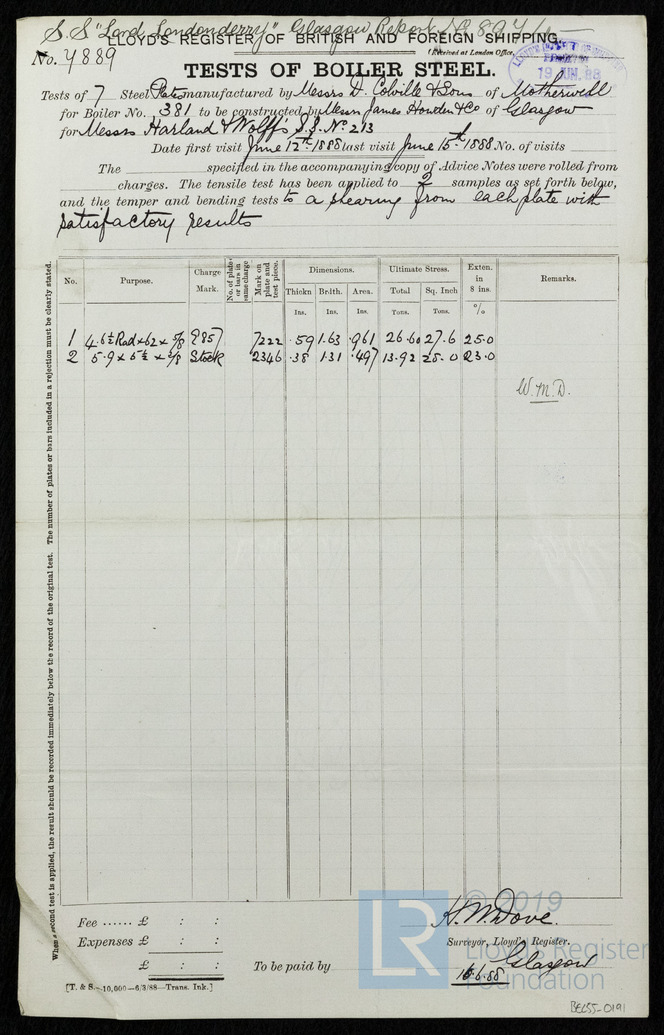 S.S "Lord Londonderry" Glasgow Report No
LLOYD'S REGISTER OF BRITISH AND FOREIGN SHIPPING.
(Received at London Office,
No. 4889
19 JUN. 88
TESTS OF BOILER STEEL.
Tests of 7 Steel Plates manufactured by Messrs D. Colville & Sons of Motherwell
for Boiler No. 381 to be constructed by Messrs James Howden & Co of Glasgow
for Messrs Harland & Wolff's S.S. No 213
Date first visit June 12th 1888 last visit June 15th 1888 No. of visits
The specified in the accompanying copy of Advice Notes were rolled from
charges. The tensile test has been applied to 2 samples as set forth below,
and the temper and bending tests to a shearing from each plate with
satisfactory results
When a second test is applied, the result should be recorded immediately below the record of the original test. The number of plates or bars included in a rejection must be clearly stated.
No. Purpose. Charge Mark. No. of plates or bars in same charge Mark on plate and test piece. Dimensions. Ultimate Stress. Exten. in 8 ins. Remarks.
Thickn Brdth. Area. Total Sq. Inch
Ins. Ins. Ins. Tons. Tons. %
1 4.6½ Rad x 62 x 5/8 7222 .59 1.63 .961 26.60 27.6 25.0
2 5.9 x 5½ x 3/8 Stock 2346 .38 1.31 .497 13.92 28.0 23.0
W.M.D.
Fee ...... £ : :
Expenses £ : :
£ : :
To be paid by
H. W. Dove.
Surveyor, Lloyd's Register.
Glasgow
16.6.88
[T. & S.—10,000—6/3/88—Trans. Ink.]
LR
© 2019
Lloyd's Register
Foundation
BEL55-0191